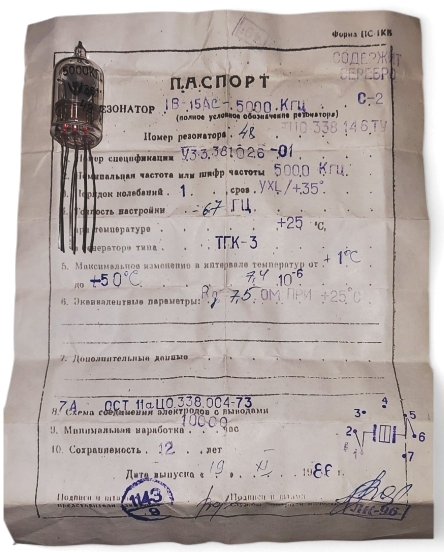 Форма ПС 1КВ
СОДЕРЖИТ
СЕРЕБРО
ПАСПОРТ
5000КГЦ
РЕЗОНАТОР 1В-15АС-5000 КГЦ С-2
(полное условное обозначение резонатора)
Номер резонатора . 48 ЦО 338 146 ТУ
Номер спецификации У33.381.026-01
Номинальная частота или шифр частоты 5000 КГЦ.
Порядок колебаний . 1 срез УХL/+35°
Точность настройки -67 ГЦ
при температуре +25 °С,
генераторе типа ТГК-3
5. Максимальное изменение в интервале температур от +1°С
до +50°С. 7,4 10-6
6. Эквивалентные параметры: 75 ОМ ПРИ +25°С
7. Дополнительные данные
7А ОСТ 11аЦО.338.004-73
8. Схема соединения электродов с выводами
9. Минимальная наработка 10000 час
10. Сохраняемость. 12 . . лет
Дата выпуска « 19 XI 1986 г.
Подпись и штамп
представителя
1143
9
Подпись и штамп
ПК-96
3 4 5
2 6
7